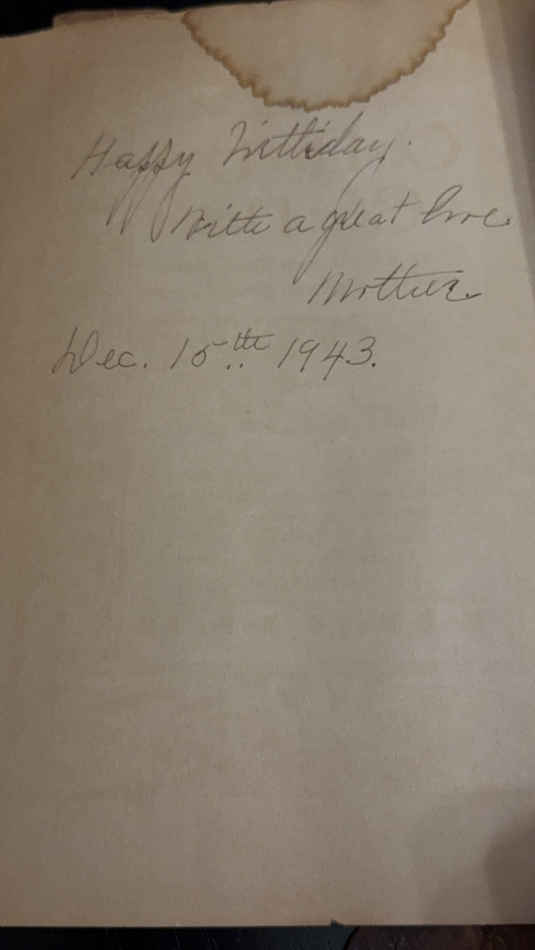 Happy Birthday.
With a great love
Mother
Dec. 15th 1943.